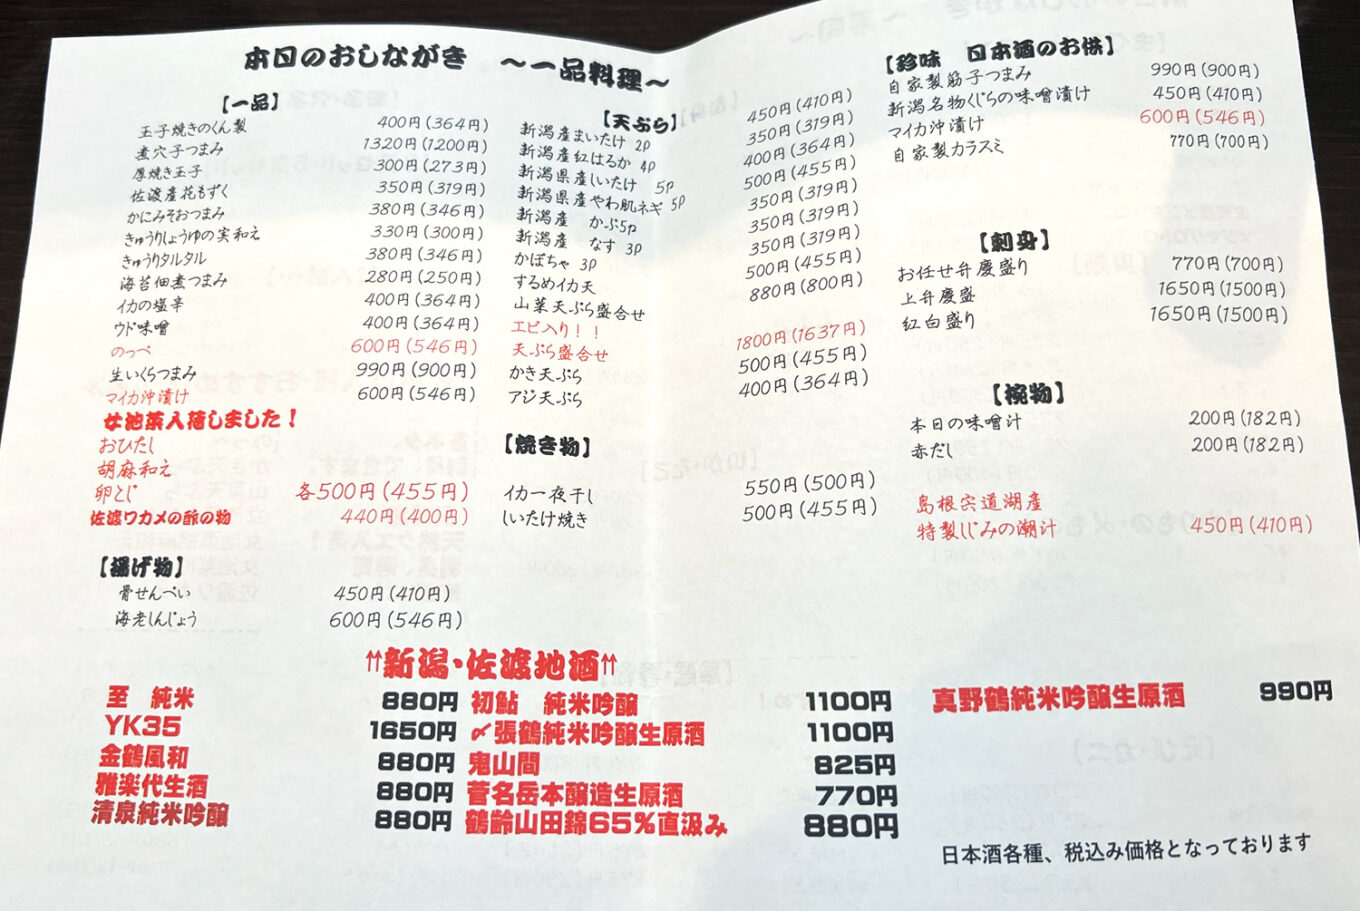 本日のおしながき ～一品料理～
【一品】
玉子焼きのくん製 400円(364円)
煮穴子つまみ 1320円(1200円)
厚焼き玉子 300円(273円)
佐渡産花もずく 350円(319円)
かにみそおつまみ 380円(346円)
きゅうりしょうゆの実和え 330円(300円)
きゅうりタルタル 380円(346円)
海苔佃煮つまみ 280円(250円)
イカの塩辛 400円(364円)
ウド味噌 400円(364円)
のっぺ 600円(546円)
生いくらつまみ 990円(900円)
マイカ沖漬け 600円(546円)
女池菜入荷しました！
おひたし
胡麻和え
卵とじ 各500円(455円)
佐渡ワカメの酢の物 440円(400円)
【揚げ物】
骨せんべい 450円(410円)
海老しんじょう 600円(546円)
【天ぷら】
新潟産まいたけ 2P 450円(410円)
新潟産紅はるか 4P 350円(319円)
新潟県産しいたけ 5P 400円(364円)
新潟県産やわ肌ネギ 5P 500円(455円)
新潟産 かぶ5P 350円(319円)
新潟産 なす 3P 350円(319円)
かぼちゃ 3P 350円(319円)
するめイカ天 500円(455円)
山菜天ぷら盛合せ 880円(800円)
エビ入り！！
天ぷら盛合せ 1800円(1637円)
かき天ぷら 500円(455円)
アジ天ぷら 400円(364円)
【焼き物】
イカ一夜干し 550円(500円)
しいたけ焼き 500円(455円)
【珍味 日本酒のお供】
自家製筋子つまみ 990円(900円)
新潟名物くじらの味噌漬け 450円(410円)
マイカ沖漬け 600円(546円)
自家製カラスミ 770円(700円)
【刺身】
お任せ弁慶盛り 770円(700円)
上弁慶盛 1650円(1500円)
紅白盛り 1650円(1500円)
【椀物】
本日の味噌汁 200円(182円)
赤だし 200円(182円)
島根宍道湖産
特製しじみの潮汁 450円(410円)
⇈新潟・佐渡地酒⇈
至 純米 880円
YK35 1650円
金鶴風和 880円
雅楽代生酒 880円
清泉純米吟醸 880円
初鮎 純米吟醸 1100円
〆張鶴純米吟醸生原酒 1100円
鬼山間 825円
菅名岳本醸造生原酒 770円
鶴齢山田錦65%直汲み 880円
真野鶴純米吟醸生原酒 990円
日本酒各種、税込み価格となっております